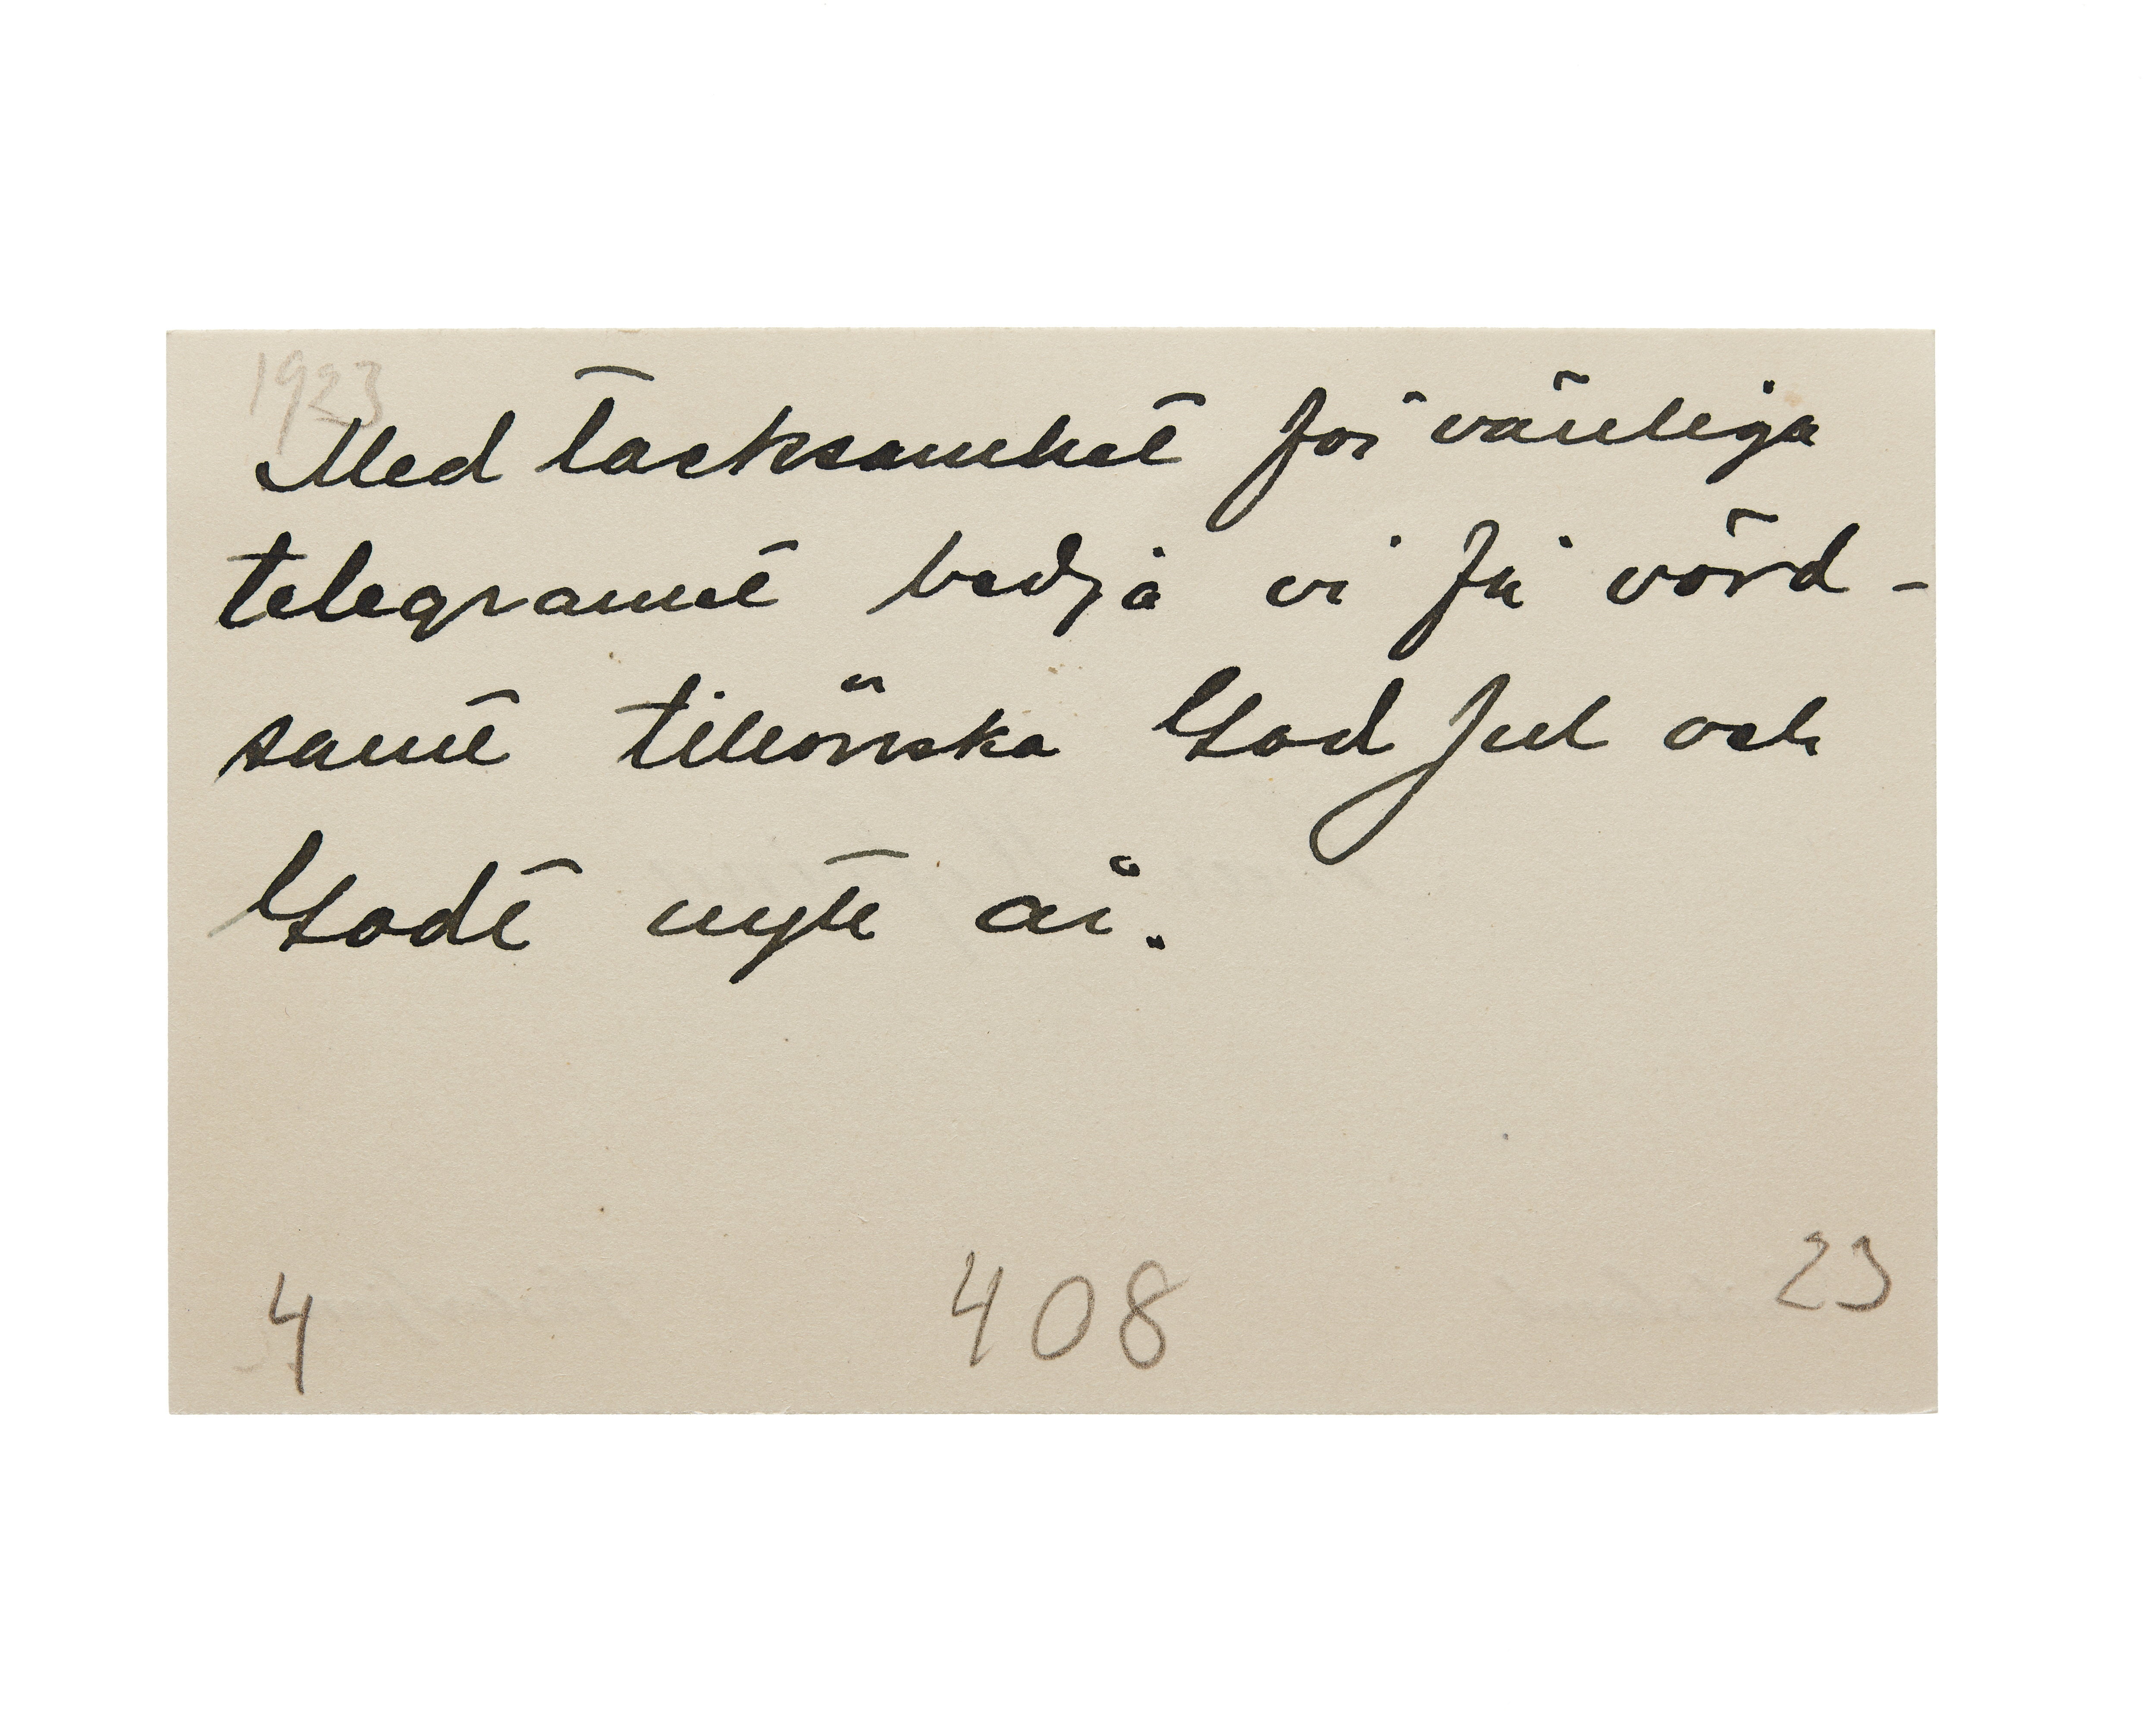 1923
Med tacksamhet för vänliga
telegramet bedja vi få vörd-
samt tillönska God Jul och
Godt nytt år.
4 408 23